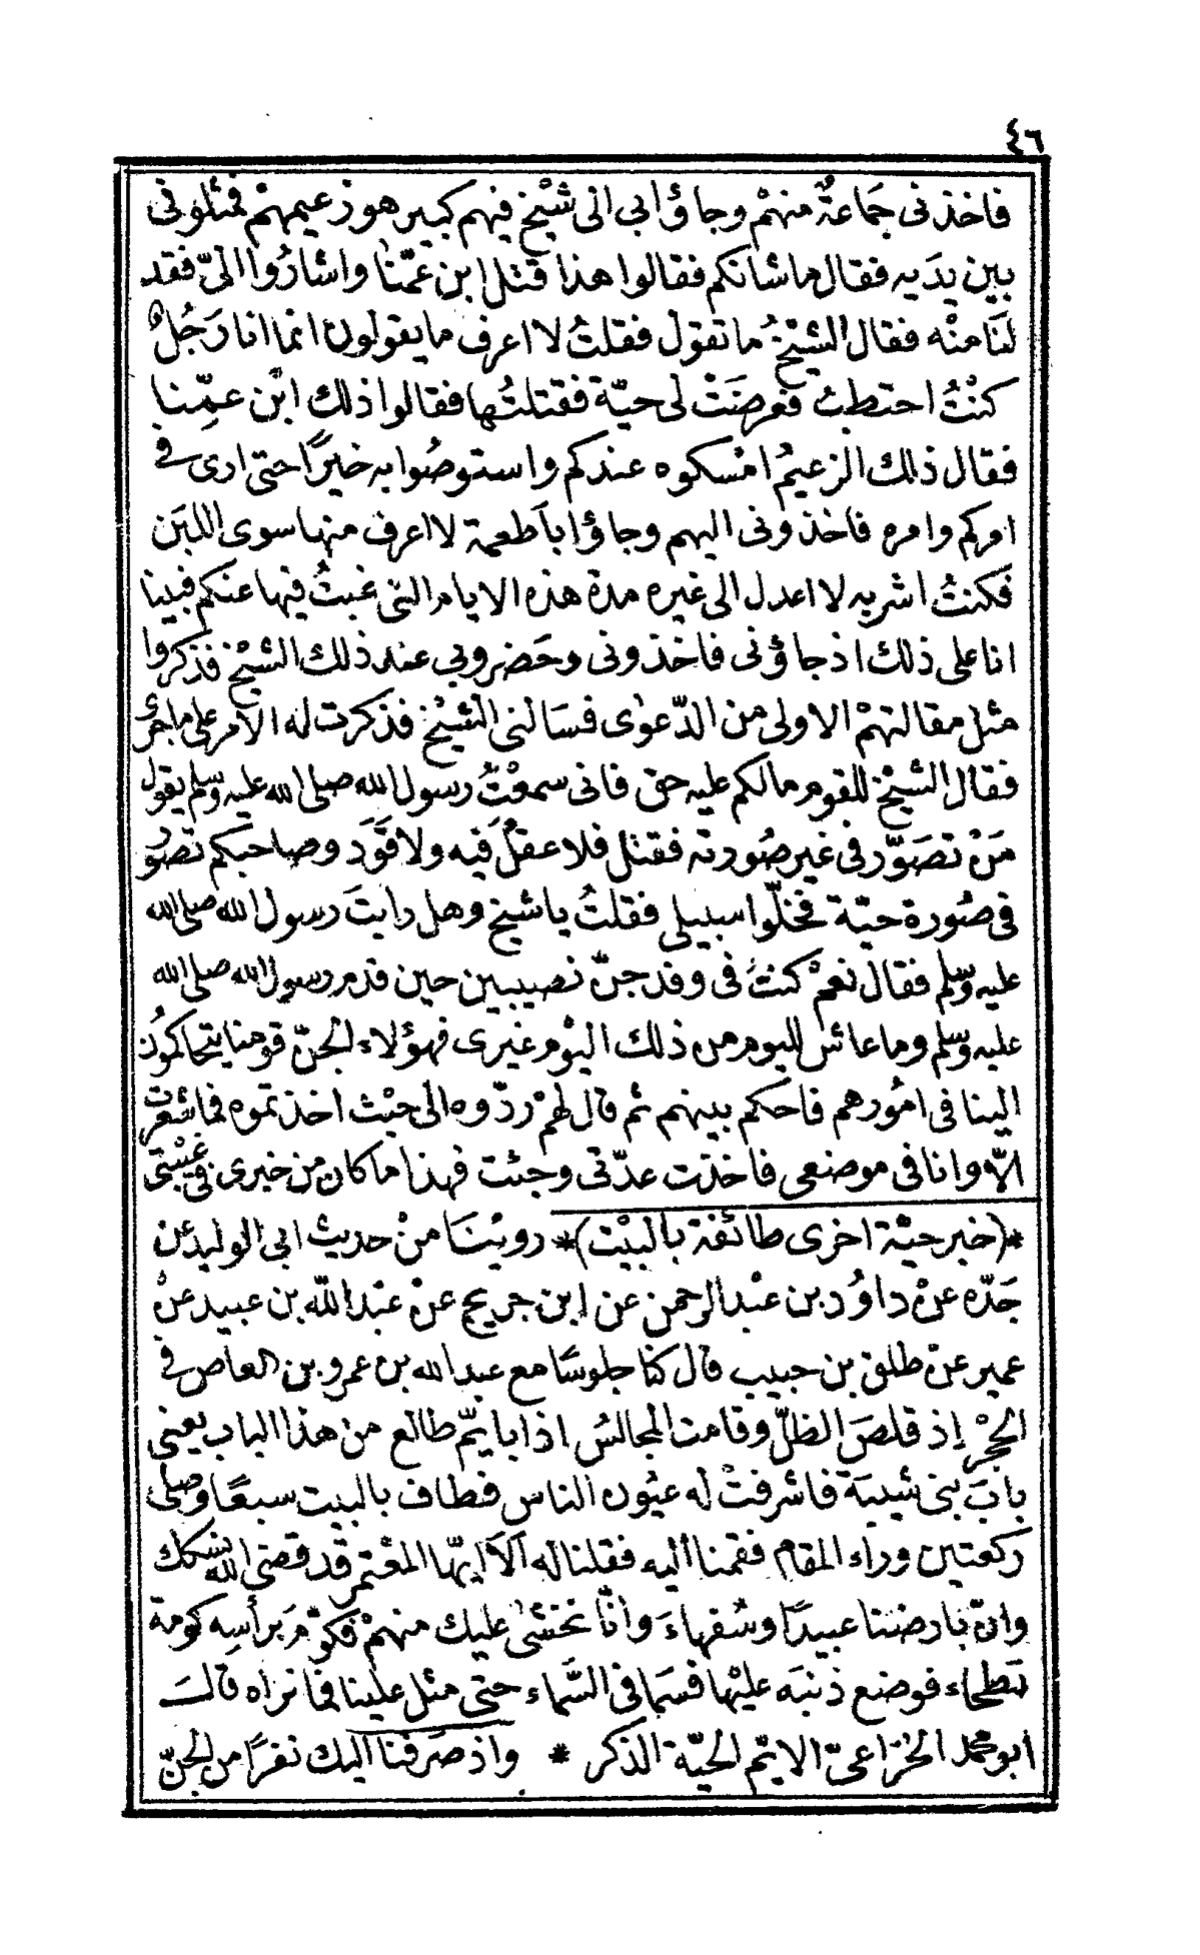 ٤٦
فاخذنى جَمَاعةٌ منهمْ وجاؤا بي الى شيْخ فيهم كبير هو زعيمهمْ فمثلونى
بين يدَيه فقال ما شانكم فقالوا هذا قتل ابن عمّنا واشارُوا الىّ فقد
لنَا منْه فقال الشيْخُ ما تقول فقلتُ لا اعرف ما يقولون انما انا رَجُلٌ
كنْتُ احتطبُ فعرضَتْ لى حيّة فقتلتُها فقالوا ذلك ابْن عمِّنا
فقال ذلك الزعيمُ امْسكوه عندكم واستوصُوا به خيرًا حتى ارى فى
امركم وامره فاخذونى اليهم وجاؤا باَطعمة لا اعرف منها سوى اللبَن
فَكنتُ اشربه لا اعدل الى غيره مدة هذه الايام التى غبتُ فيها عنكم فبينا
انا على ذلك اذ جاؤنى فاخذونى وحَضروبي عند ذلك الشيْخ فذكروا
مثل مقالتهمْ الاولى من الدّعوٰى فسَالنى الشيْخ فذكرت له الامر على ما جرى
فقال الشيْخ للقوم ما لكم عليه حق فانى سمعْتُ رسول الله صلى الله عليه وسلم يقول
مَنْ تصَوّر فى غير صُورته فقتل فلا عقلَ فيه ولا قَوَد وصاحبكم تصوّر
فى صُورة حيّة فخلّوا سبيلى فقلتُ يا شيخ وهل رايتَ رسول الله صلى الله
عليه وسلم فقال نعمْ كنتُ فى وفد جنّ نصيبين حين قدم رسول الله صلى الله
عليه وسلم وما عاش لليوم من ذلك اليوْم غيرى فهؤلاء الجنّ قومنا يتحاكمُون
الينا فى امُورهم فاحكم بينهم ثم قال لهمْ ردّوه الى حيْث اخذتموه فما شعرت
الاّ وانا فى موضعى فاخذت عدّتى وجئت فهذا ما كان من خبرى فى غيْبتى
*(خبر حيّة اخرى طائفة بالبيْت)* رويْنَا منْ حديث ابى الوليد عن
جَدّه عنْ داوُد بن عبْد الرحمن عن ابن جريج عنْ عبْد الله بن عبيد عنْ
عمير عنْ طلق بن حبيب قال كنا جلوسًا مع عبد الله بن عمرو بن العاص فى
الحجْر إذ قلصَ الظلّ وقامت المجالسُ اذا بايّم طالع من هذا الباب يعنى
بابَ بنى شيبَة فاشرفتْ له عيُون الناس فطاف بالبيت سبعًا وصلى
ركعتين وراء المقام فقمنا أليه فقلنا له اَلاَ ايّها المعْتمر قد قضى الله نسكك
وانّ بارضنا عبيدًا وسُفهاءَ وانّا نخشٰى عليك منهمْ فكوّمَ برأسِه كومة
بَطحاء فوضع ذنبَه عليْها فسَما فى السَّماء حتى مثل علينا فما نراه قالـــ
ابو محمد الخزاعىّ الايّم الحيّة الذكر * واذ صَرفنا اليك نفرًا من الجنّ